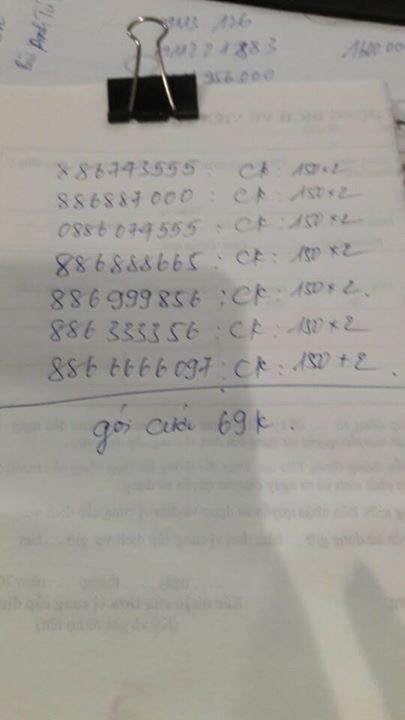 113 126
1122 1883
1600.000
956.000
886743555 : CK : 150 x 2
886887000 : CK : 150 x 2
0886074555 : CK : 150 x 2
886888665 : CK : 150 x 2
886999856 : CK : 150 x 2.
886333356 : CK : 150 x 2
8866666097 : CK : 150 + 2.
gói cước 69k.